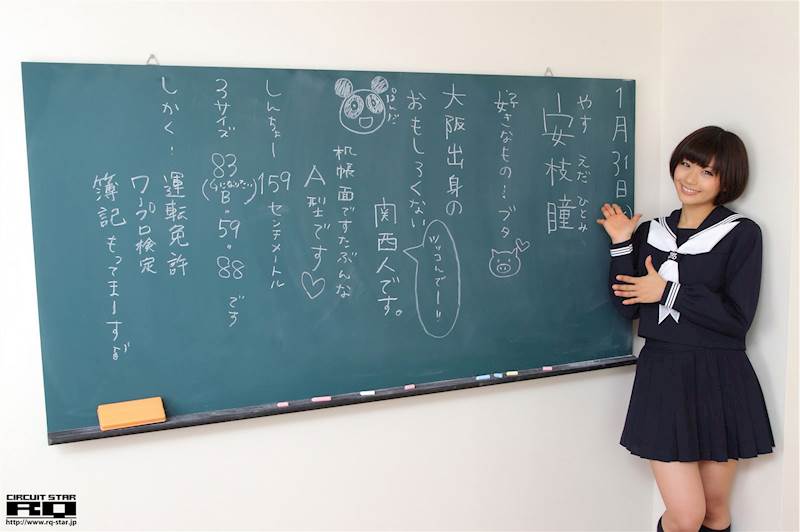 1月31日
やす えだ ひとみ
安枝瞳
好きなもの…ブタ
大阪出身の
おもしろくない
関西人です。
ツッコんでー!!
ぱんだ
机帳面ですたぶんな
A型です♡
しんちょー
159センチメートル
3サイズ
83
B・59・88 でう
しかく!
運転免許
ワープロ検定
簿記 もってまーすよ
CIRCUIT STAR
RQ
http://www.rq-star.jp